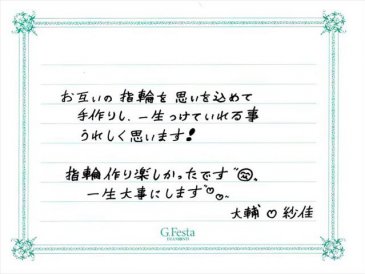 お互いの指輪を思いを込めて
手作りし、一生つけていれる事
うれしく思います!
指輪作り楽しかったです
一生大事にします
大輔♡紗佳
G.Festa
DIAMOND